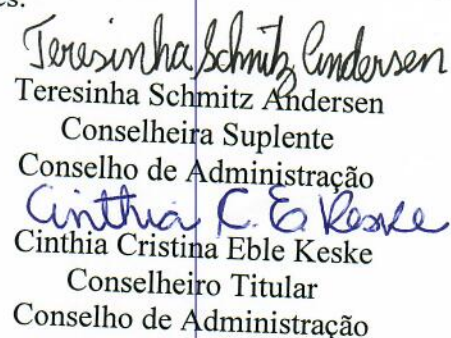 es:
Teresinha Schmitz Andersen
Teresinha Schmitz Andersen
Conselheira Suplente
Conselho de Administração
Cinthia C. E. Keske
Cinthia Cristina Eble Keske
Conselheiro Titular
Conselho de Administração